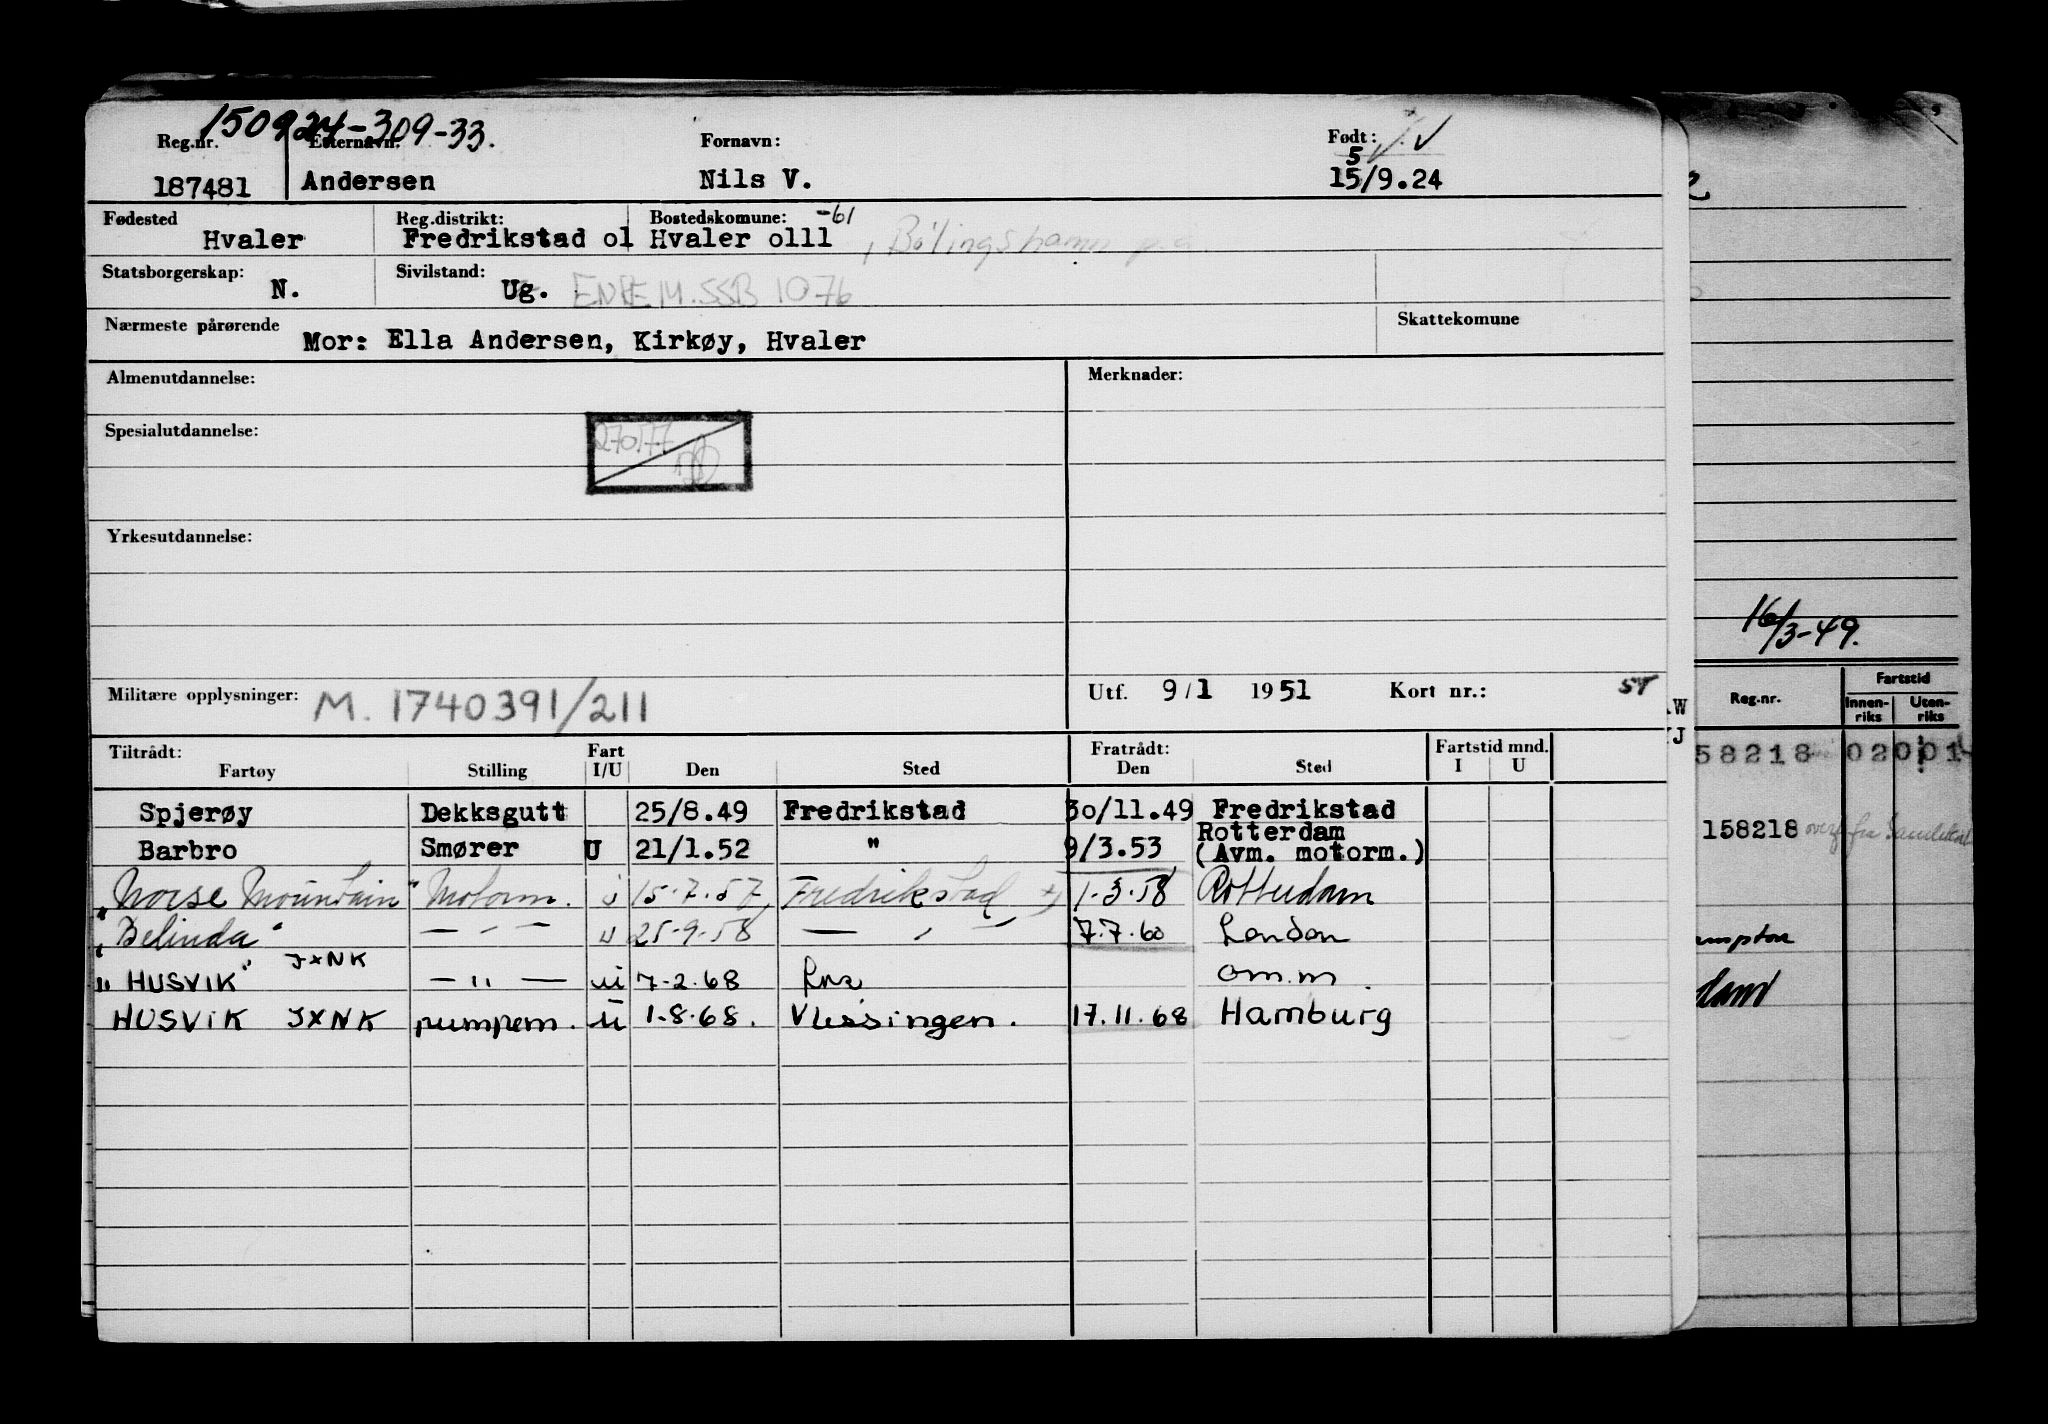 150924-309-33.
Reg.nr. Etternavn: Fornavn: Født:
5
187481 Andersen Nils V. 15/9.24
Fødested Reg.distrikt: Bostedskomune: -61
Hvaler Fredrikstad ol Hvaler olll
Statsborgerskap: Sivilstand:
N. Ug. ENKEM. SSB 1076
Nærmeste pårørende Skattekomune
Mor: Ella Andersen, Kirkøy, Hvaler
Almenutdannelse: Merknader:
Spesialutdannelse:
270177
Yrkesutdannelse:
16/3-49.
Militære opplysninger: M. 1740391/211 Utf. 9/1 1951 Kort nr.:
Tiltrådt: Fart Fratrådt: Fartstid mnd.
Fartøy Stilling I/U Den Sted Den Sted I U
Spjerøy Dekksgutt 25/8.49 Fredrikstad 30/11.49 Fredrikstad
Barbro Smører U 21/1.52 " 9/3.53 Rotterdam
(Avm. motorm.)
"Norse Mountain" Motorm. u 15-7.57 Fredrikstad 1-3-58 Rotterdam
"Belinda" — " — u 25-9-58 — " — 7.7.60 London
"HUSVIK" JXNK — " — u 7-2.68 om.m.
HUSVIK JXNK pumpem. u 1.8.68. Vlissingen. 17.11.68 Hamburg
Reg.nr. Fartstid
Innen-riks Uten-riks
58218 02001
158218